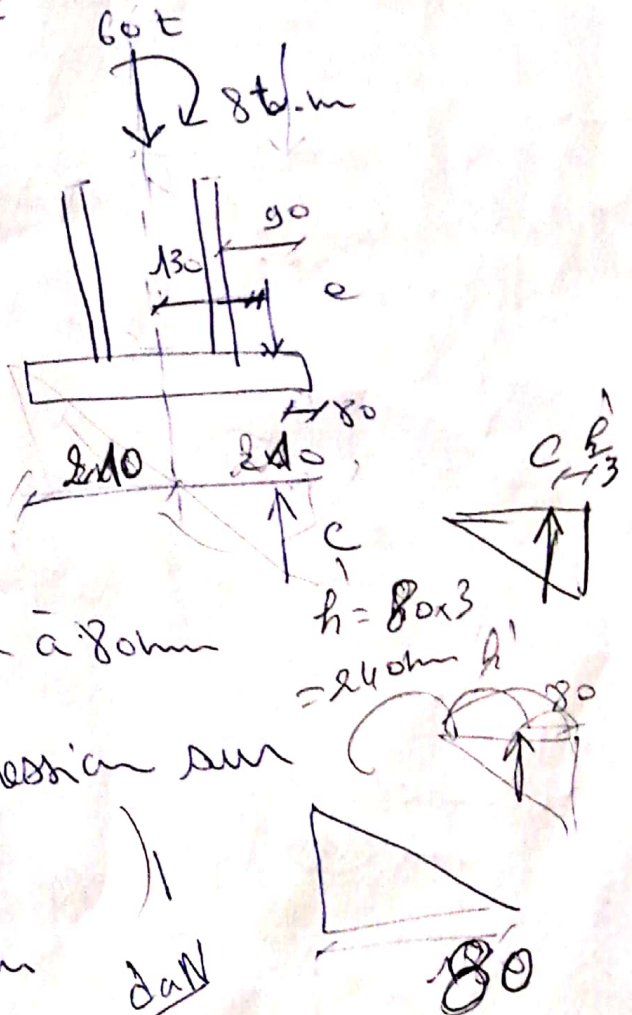 60 t
8 t.m
90
130
e
80
210 210
C h'/3
C
h' = 80x3
à 80mm
= 240mm h'
80
ession sur
daN
80